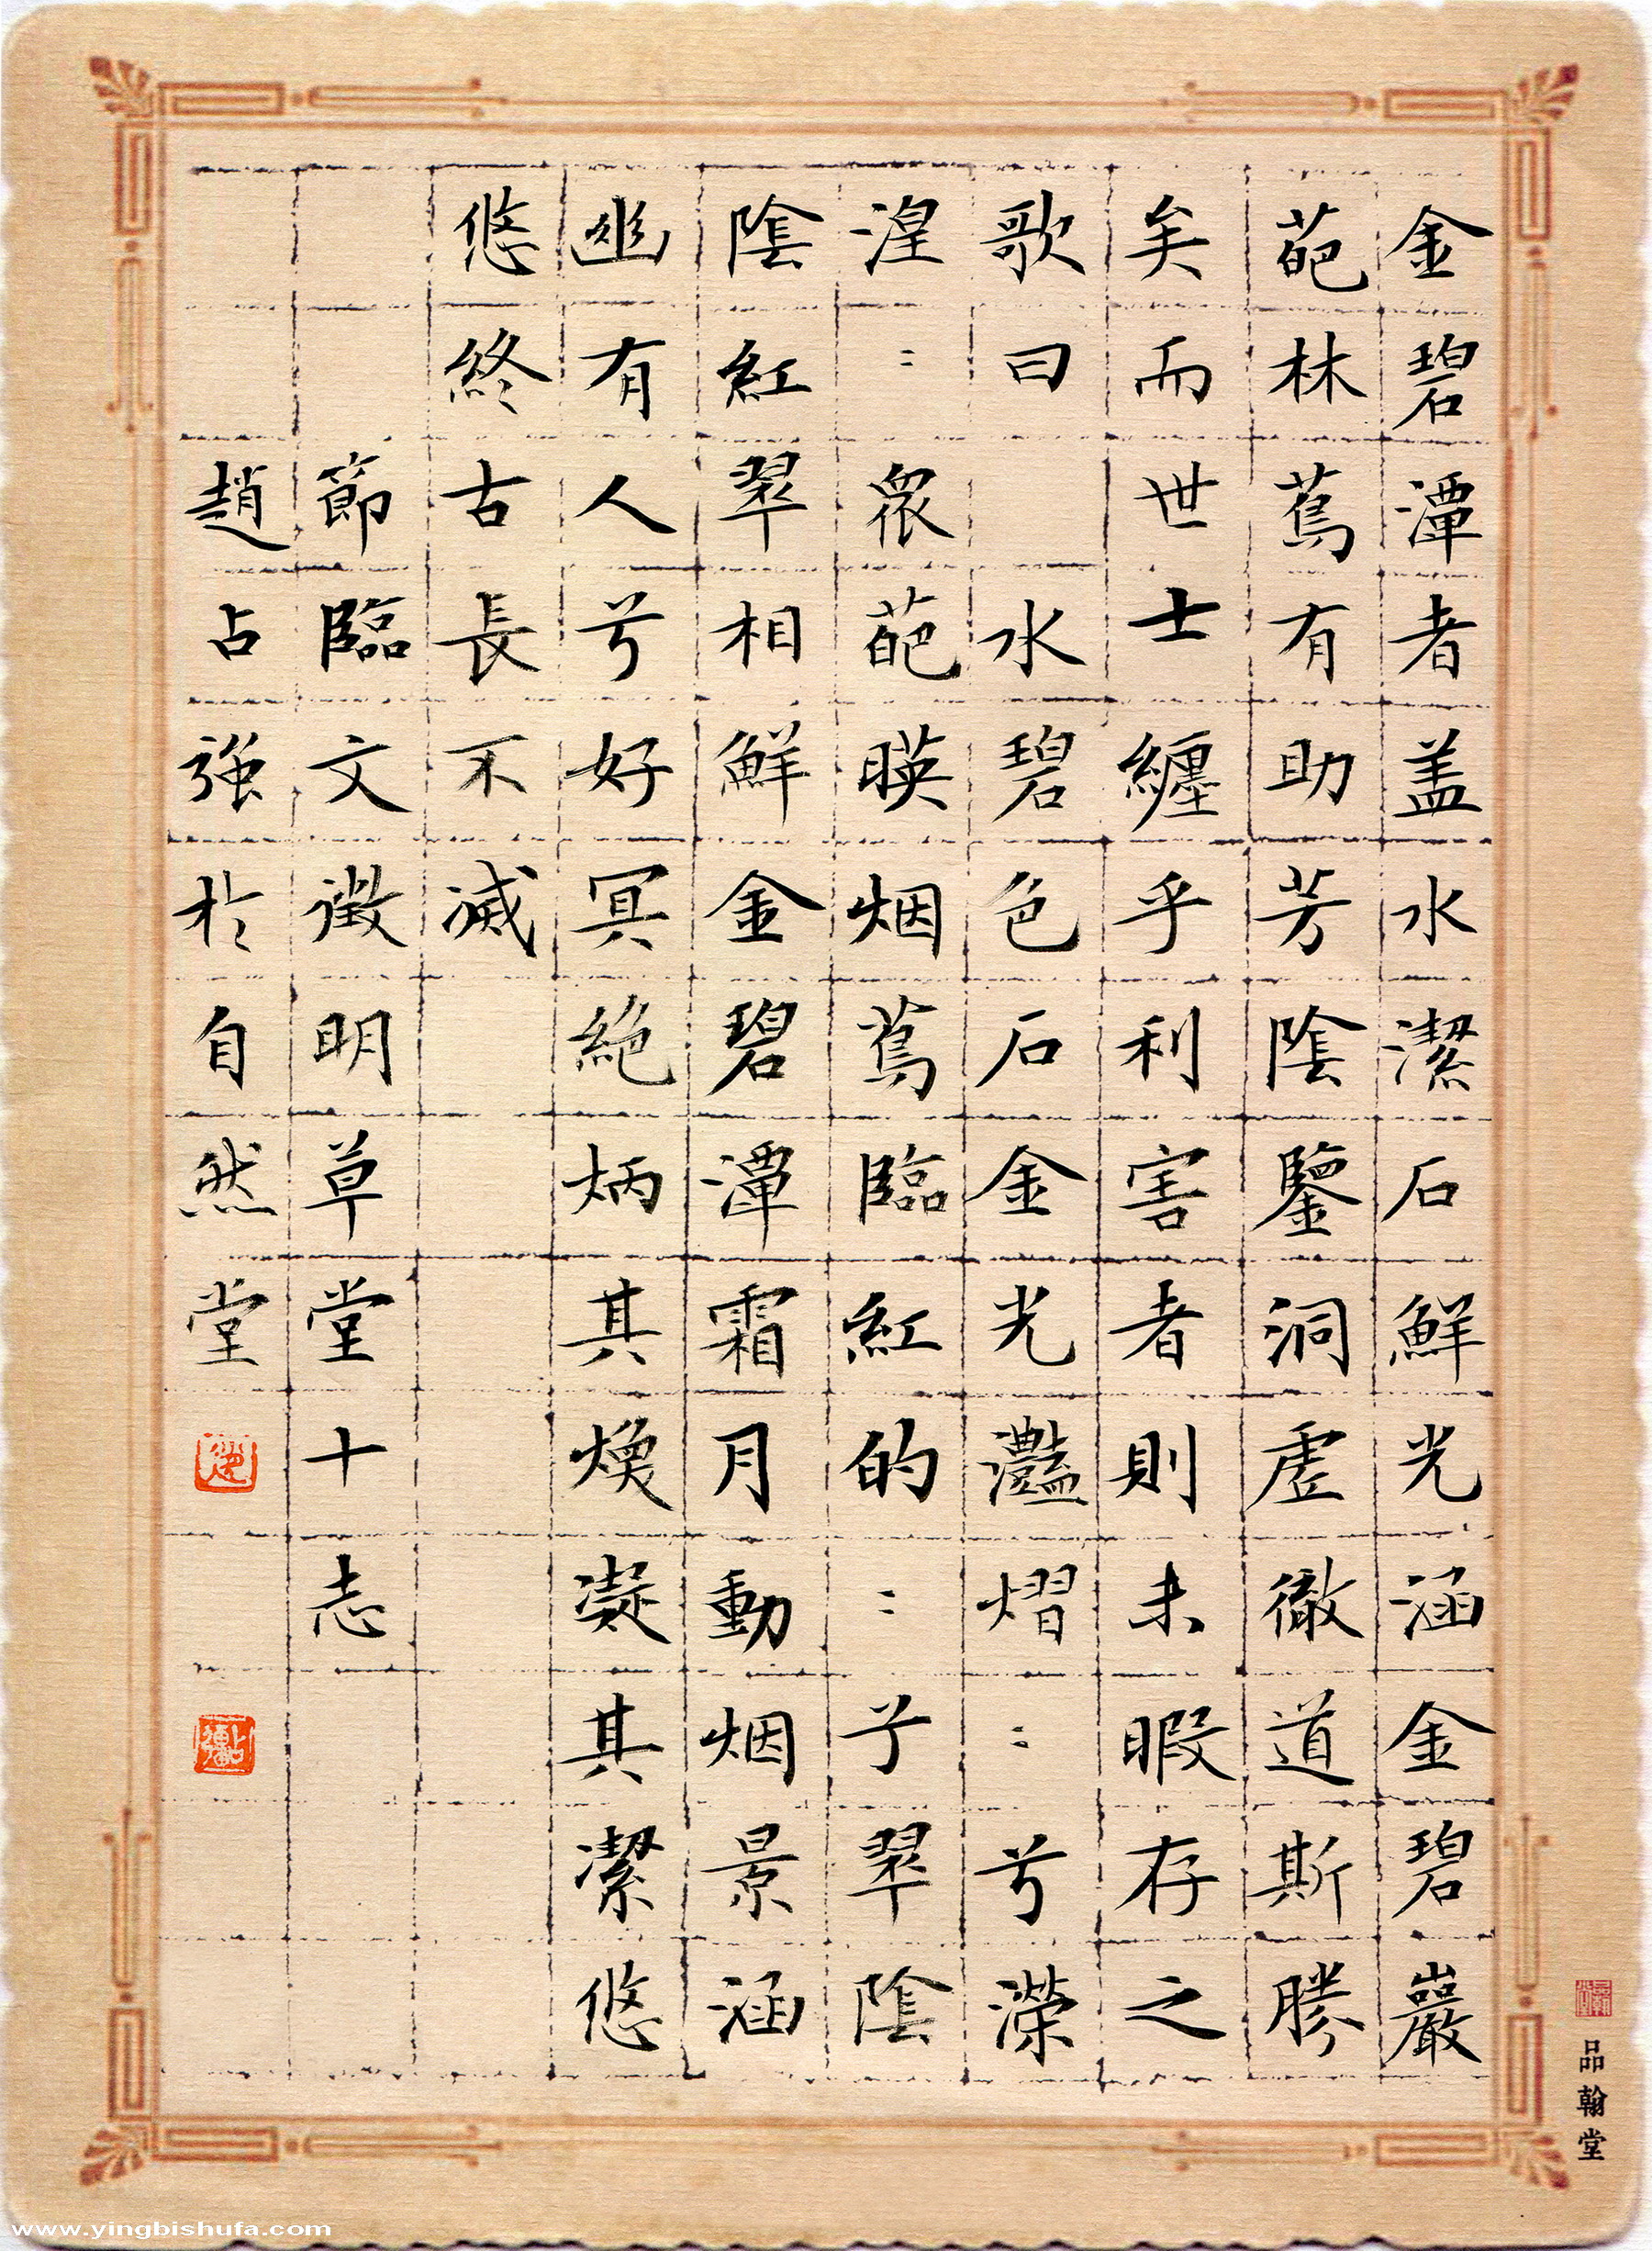 金碧潭者盖水潔石鮮光涵金碧巖
葩林蔦有助芳陰鑒洞虛徹道斯勝
矣而世士纏乎利害者則未暇存之
歌曰 水碧色石金光灩熠:兮濚
湟:眾葩暎烟蔦臨紅的:兮翠陰
陰紅翠相鮮金碧潭霜月動烟景涵
幽有人兮好冥絕炳其煥凝其潔悠
悠終古長不滅
節臨文徵明草堂十志
趙占強於自然堂
品翰堂
www.yingbishufa.com